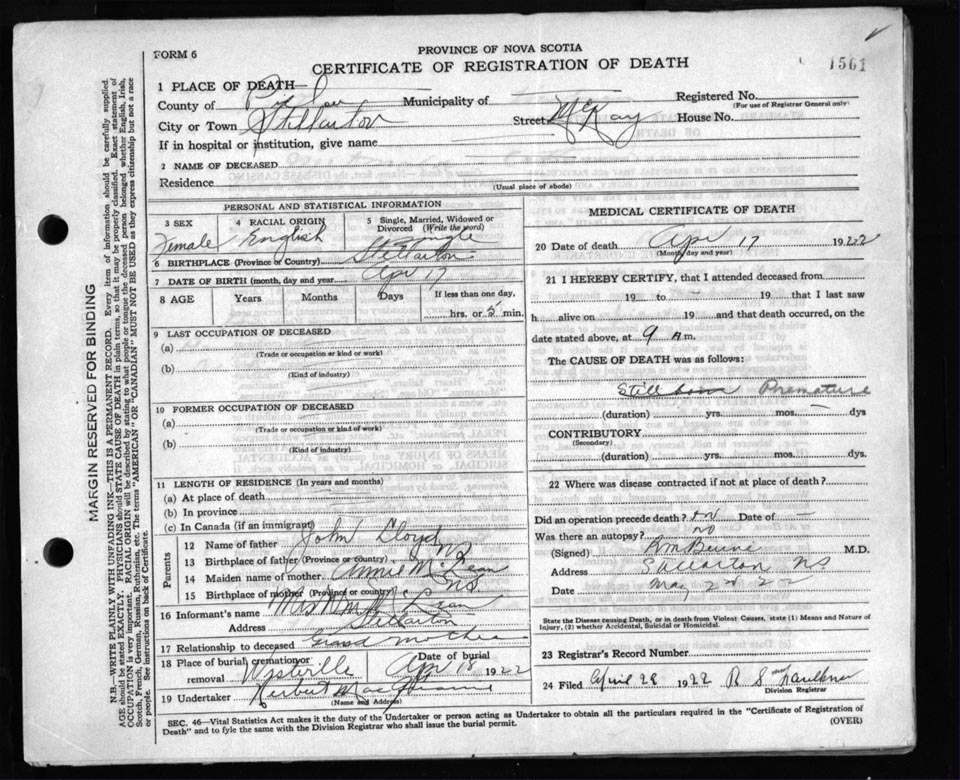 FORM 6
PROVINCE OF NOVA SCOTIA
CERTIFICATE OF REGISTRATION OF DEATH
1561
1 PLACE OF DEATH—
County of Pictou Municipality of Registered No.
(For use of Registrar General only)
City or Town Stellarton Street McKay House No.
If in hospital or institution, give name
2 NAME OF DECEASED
Residence
(Usual place of abode)
PERSONAL AND STATISTICAL INFORMATION
3 SEX
Female
4 RACIAL ORIGIN
English
5 Single, Married, Widowed or Divorced (Write the word)
Single
6 BIRTHPLACE (Province or Country) Stellarton
7 DATE OF BIRTH (month, day and year) Apr 17
8 AGE Years Months Days If less than one day,
hrs. or 5 min.
9 LAST OCCUPATION OF DECEASED
(a)
(Trade or occupation or kind or work)
(b)
(Kind of industry)
10 FORMER OCCUPATION OF DECEASED
(a)
(Trade or occupation or kind of work)
(b)
(Kind of industry)
11 LENGTH OF RESIDENCE (In years and months)
(a) At place of death
(b) In province
(c) In Canada (if an immigrant)
Parents
12 Name of father John Lloyd
13 Birthplace of father (Province or country) NS
14 Maiden name of mother Annie McLean
15 Birthplace of mother (Province or country) NS.
16 Informant's name Mrs
Address Stellarton
17 Relationship to deceased Grand mother
18 Place of burial, cremation or removal Westville Date of burial Apr 18 1922
19 Undertaker Herbert
(Name and Address)
MEDICAL CERTIFICATE OF DEATH
20 Date of death Apr 17 1922
(Month, day and year)
21 I HEREBY CERTIFY, that I attended deceased from
19 to 19 that I last saw
h alive on 19 and that death occurred, on the
date stated above, at 9 A m.
The CAUSE OF DEATH was as follows:
Still born Premature
(duration) yrs. mos. dys
CONTRIBUTORY
(Secondary)
(duration) yrs. mos. dys.
22 Where was disease contracted if not at place of death?
Did an operation precede death? no Date of
Was there an autopsy? no
(Signed) M.D.
Address Stellarton NS
Date May 2nd 22
State the Disease causing Death, or in death from Violent Causes, state (1) Means and Nature of Injury, (2) whether Accidental, Suicidal or Homicidal.
23 Registrar's Record Number
24 Filed April 28 1922 R S Faulkner
Division Registrar
SEC. 46—Vital Statistics Act makes it the duty of the Undertaker or person acting as Undertaker to obtain all the particulars required in the "Certificate of Registration of
Death" and to fyle the same with the Division Registrar who shall issue the burial permit. (OVER)
MARGIN RESERVED FOR BINDING
N.B.—WRITE PLAINLY WITH UNFADING INK—THIS IS A PERMANENT RECORD. Every item of information should be carefully supplied.
AGE should be stated EXACTLY. PHYSICIANS should STATE CAUSE OF DEATH in plain terms, so that it may be properly classified. Exact statement of
OCCUPATION is very important. RACIAL ORIGIN will be described by stating to what people or tongue the deceased person belonged whether English, Irish,
Scotch, French, German, Russian, Ruthenian, etc. The terms "AMERICAN" OR "CANADIAN" MUST NOT BE USED as they express citizenship but not a race
or people. See instructions on back of Certificate.